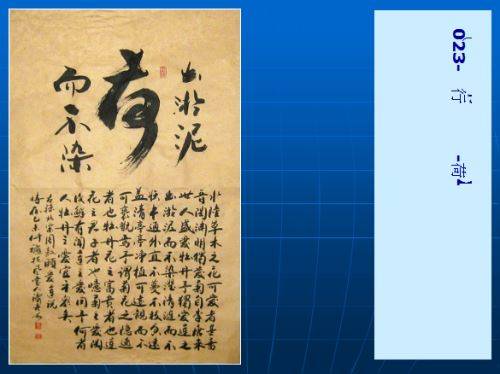 023- 行 -荷
出淤泥
荷
而不染
水陸草木之花可愛者甚蕃
晋陶渊明獨愛菊自李唐来
世人盛愛牡丹予獨愛蓮之
出淤泥而不染濯清漣而不
妖中通外直不蔓不枝香遠
益清亭亭净植可遠觀而不
可褻玩焉予謂菊花之隱逸
者也牡丹花之富貴者也蓮
花之君子者也噫菊之愛陶
後鮮有聞蓮之愛同予何者
人牡丹之愛宜乎衆矣
右録北宋周敦頤愛蓮説
時在乙未仲